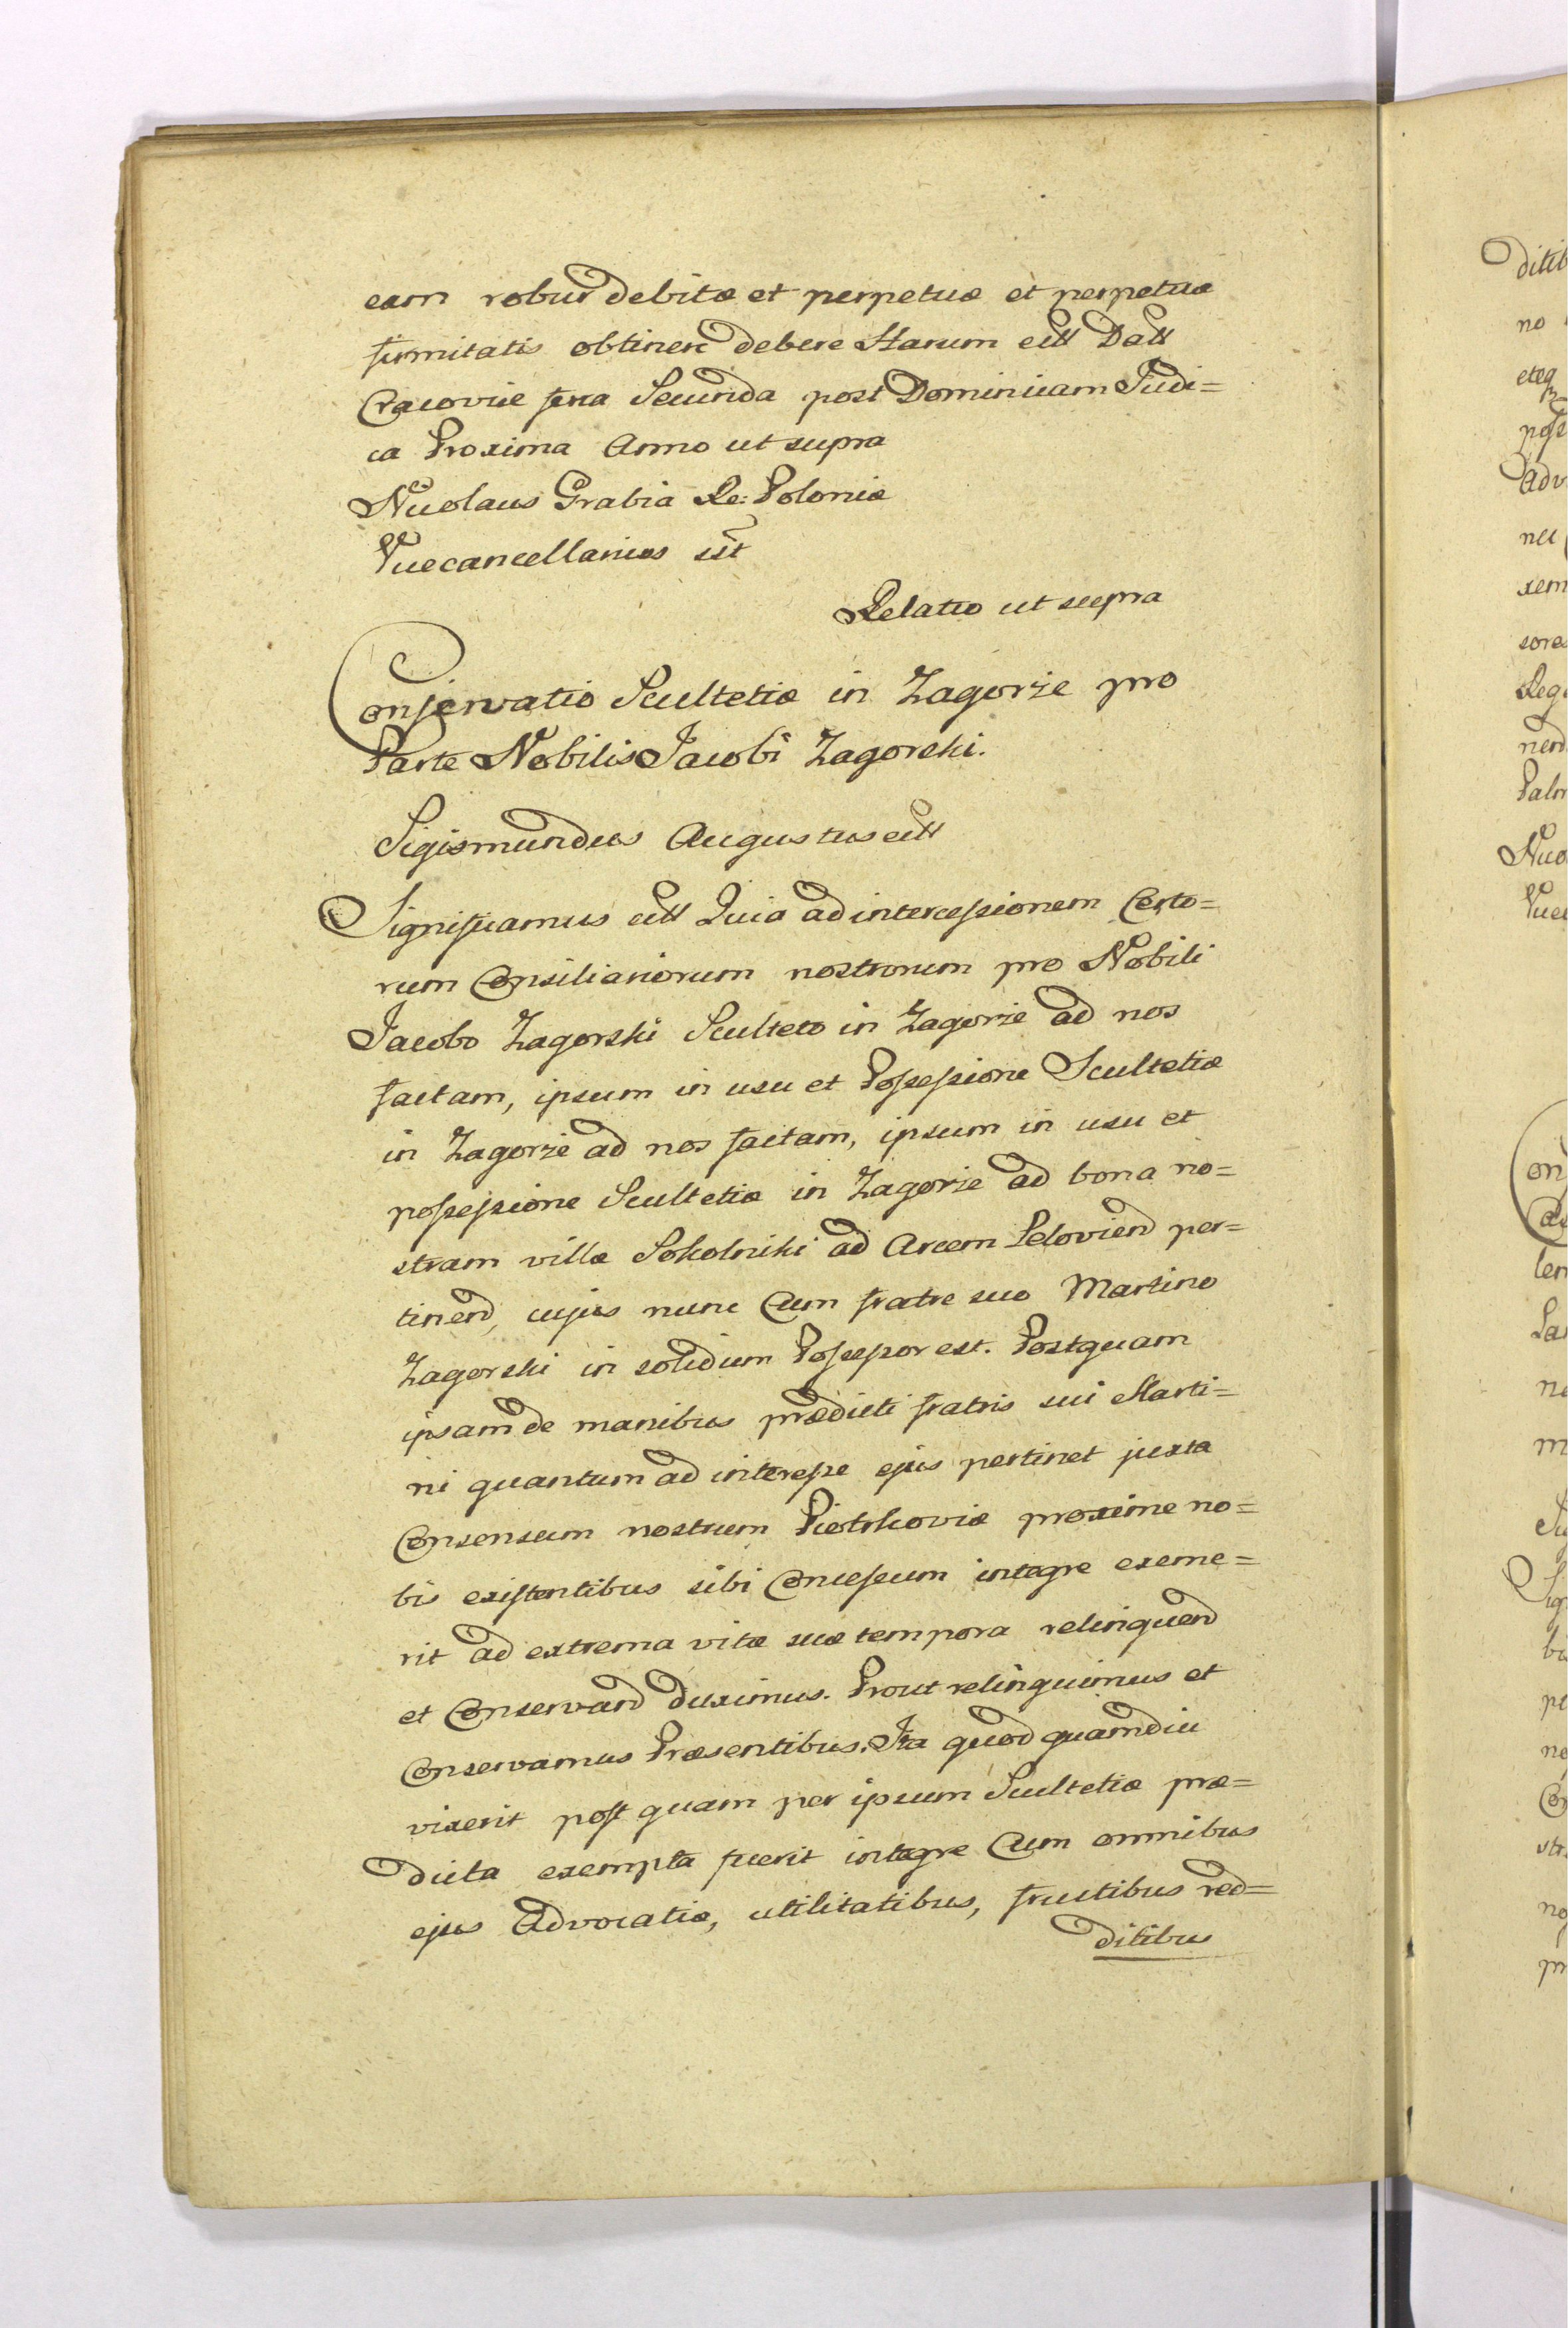 eam robur debitæ et perpetuæ et perpetuæ
firmitatis obtinere debere Harum ett Datt
Cracoviæ feria Secunda post Dominicam Judi=
ca Proxima Anno ut supra
Nicolaus Grabia Re: Poloniæ
Vicecancellarius sst
Relatio ut supra
Conservatio Scultetiæ in Zagorze pro
Parte Nobilis Jacobi Zagorski.
Sigismundus Augustus ett
Significamus ett Quia ad intercessionem Certo=
rum Consiliariorum nostrorum pro Nobili
Jacobo Zagorski Sculteto in Zagorze ad nos
factam, ipsum in usu et Possessione Scultetiæ
in Zagorze ad nos factam, ipsum in usu et
possessione Scultetiæ in Zagorze ad bona no=
stram villæ Sokolniki ad Arcem Leloviend per=
tinend, cujus nunc Cum fratre suo Martino
Zagorski in solidum Possessor est. Postquam
ipsam de manibus prædicti fratris sui Marti=
ni quantum ad interesse ejus pertinet juxta
Consensum nostrum Piotrkoviæ proxime no=
bis existentibus sibi Concessum integre exeme=
rit ad extrema vitæ suæ tempora relinquend
et Conservand duximus. Prout relinquimus et
Conservamus Præsentibus. Ita quod quamdiu
vixerit post quam per ipsum Scultetiæ præ=
dicta exempta fuerit integre Cum omnibus
ejus Advocatiæ, utilitatibus, fructibus red=
ditibus